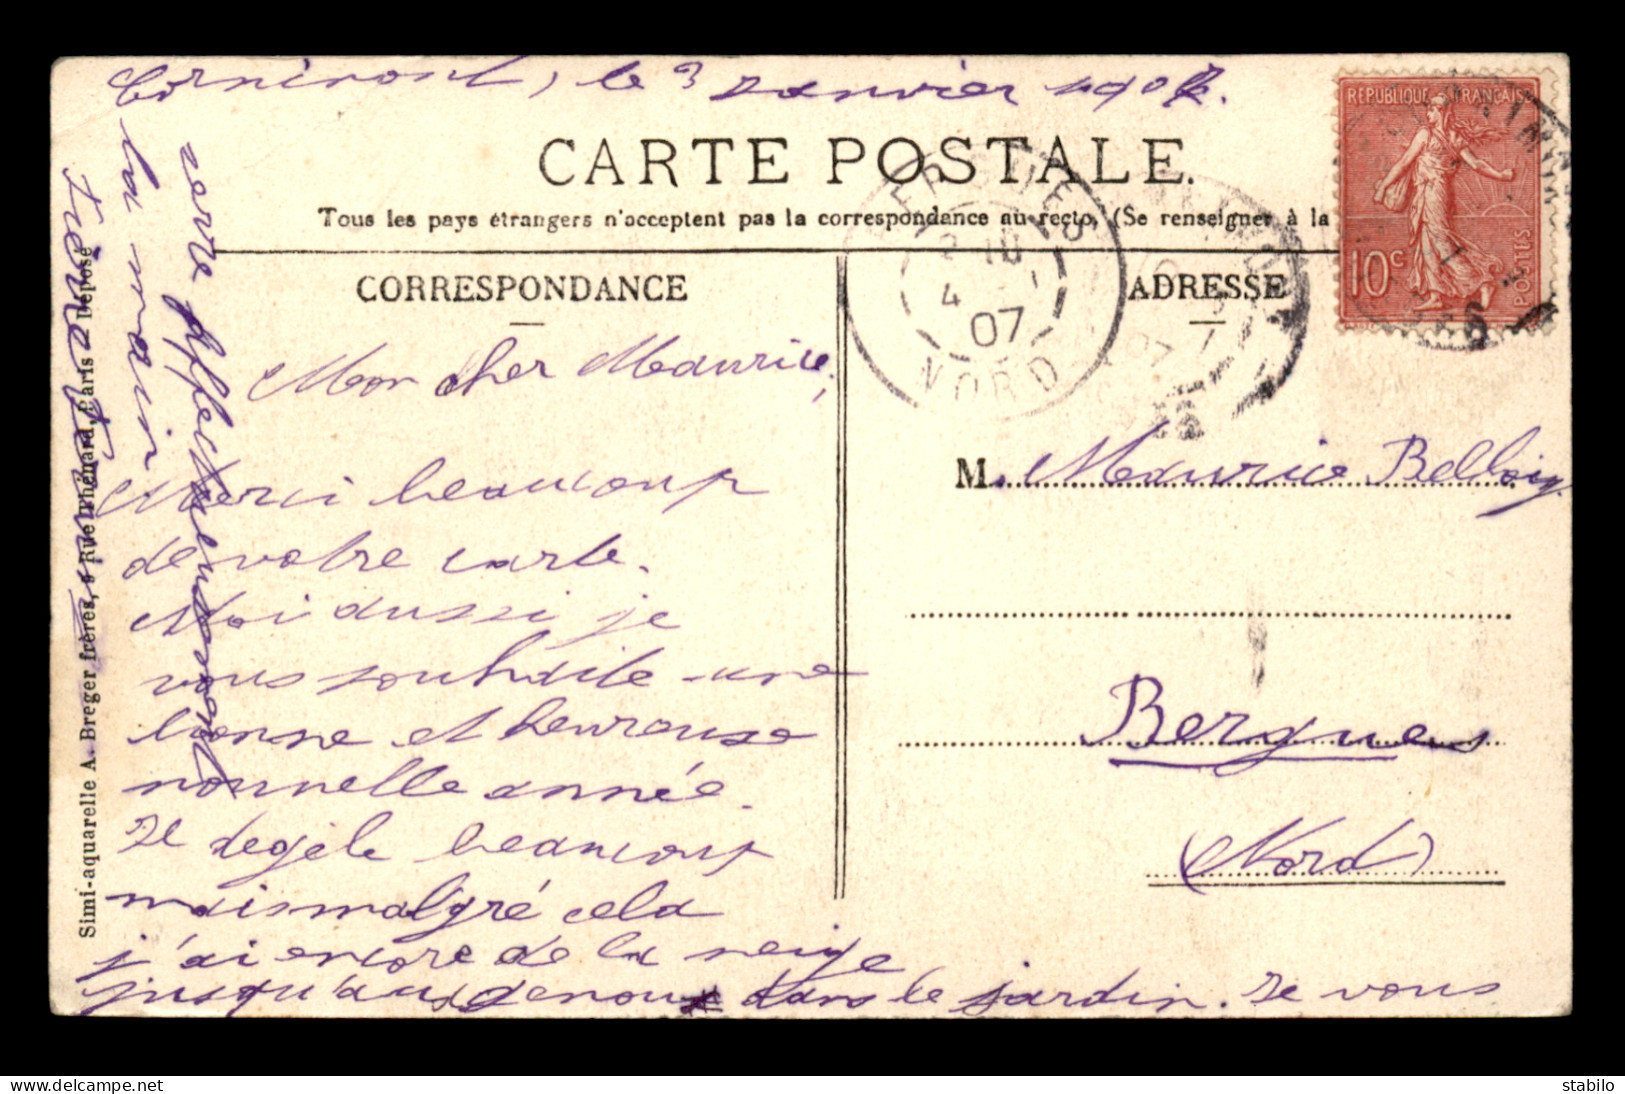 Cornimont, le 3 Janvier 1907.
CARTE POSTALE.
Tous les pays étrangers n'acceptent pas la correspondance au recto, (Se renseigner à la
CORRESPONDANCE
ADRESSE
REPUBLIQUE FRANÇAISE
10c
POSTES
BERGUES
4 - 1
07
NORD
Mon cher Maurice,
Merci beaucoup
de votre carte.
Moi aussi je
vous souhaite une
bonne et heureuse
nouvelle année.
Il dégèle beaucoup
mais malgré cela
j'ai encore de la neige
jusqu'aux genoux dans le jardin. Je vous
serre affectueusement
la main
Etienne
M. Maurice Belloir
Bergues
(Nord)
Simi-aquarelle A. Breger frères, 9 Rue Thénard, Paris Déposé
stabilo